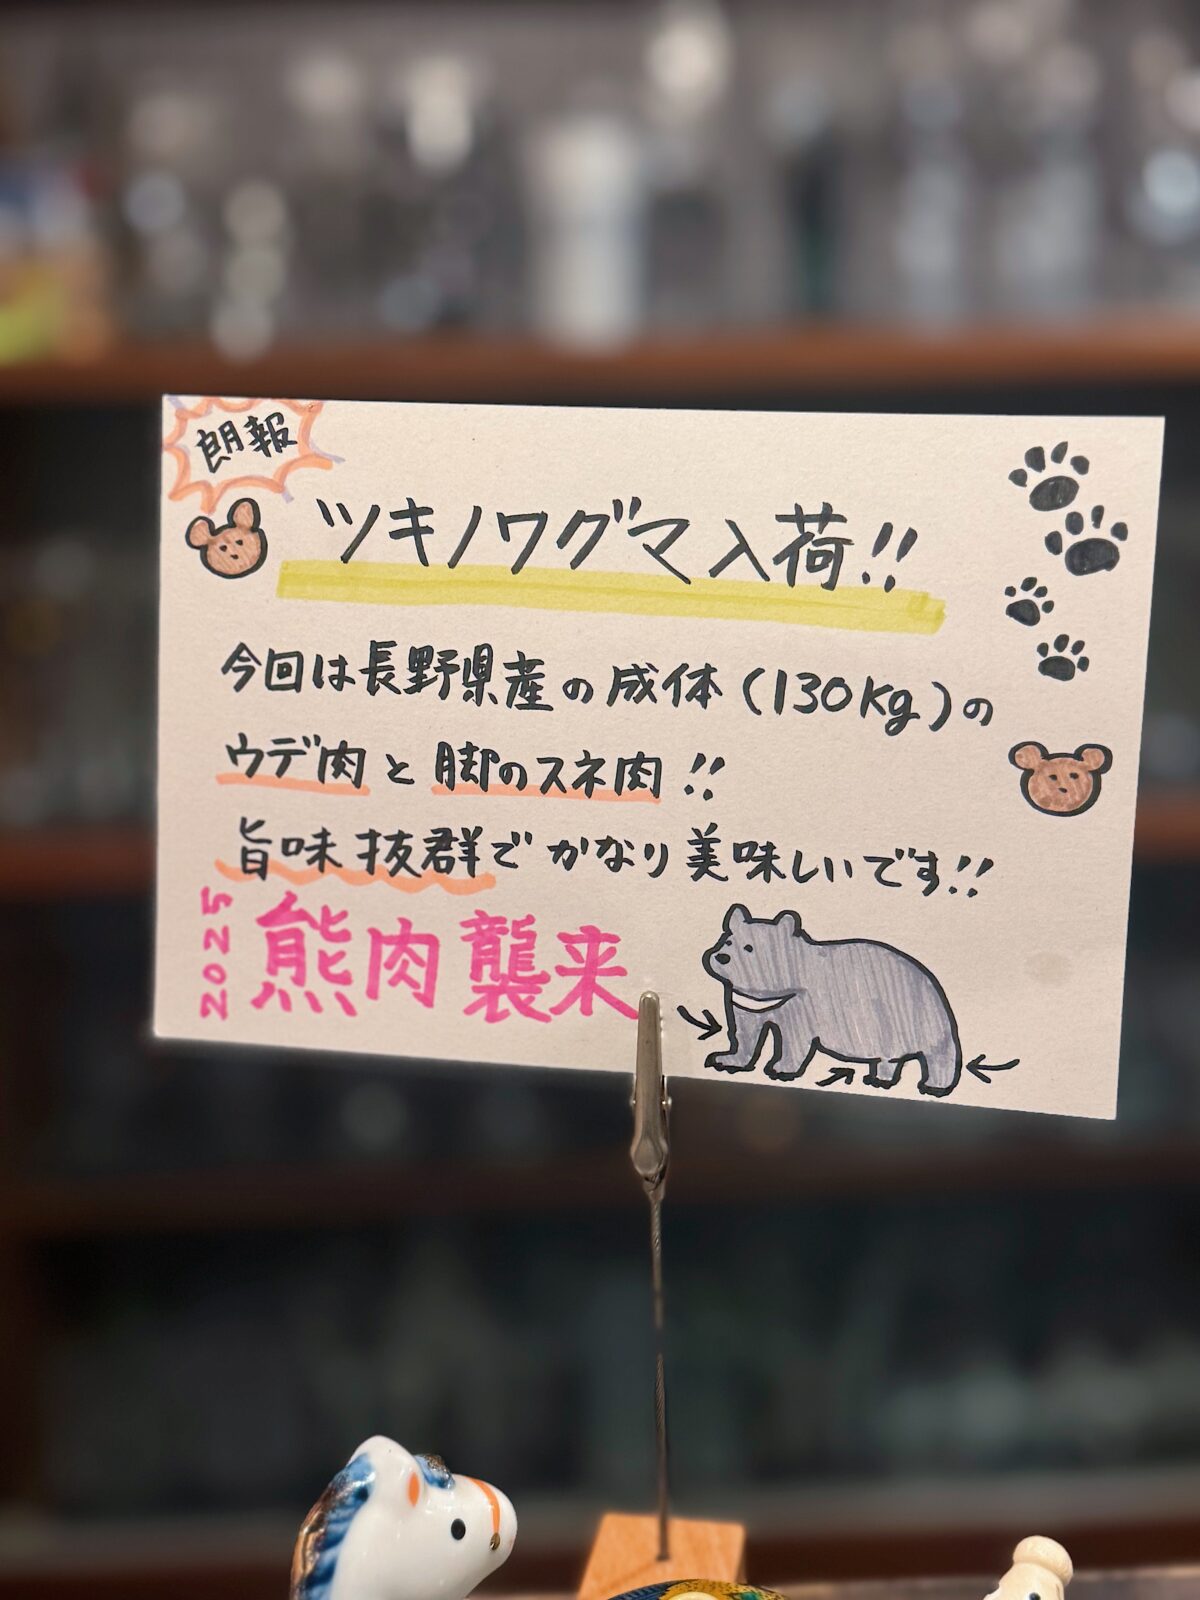 朗報
ツキノワグマ入荷!!
今回は長野県産の成体(130Kg)の
ウデ肉と脚のスネ肉!!
旨味抜群でかなり美味しいです!!
2025
熊肉襲来